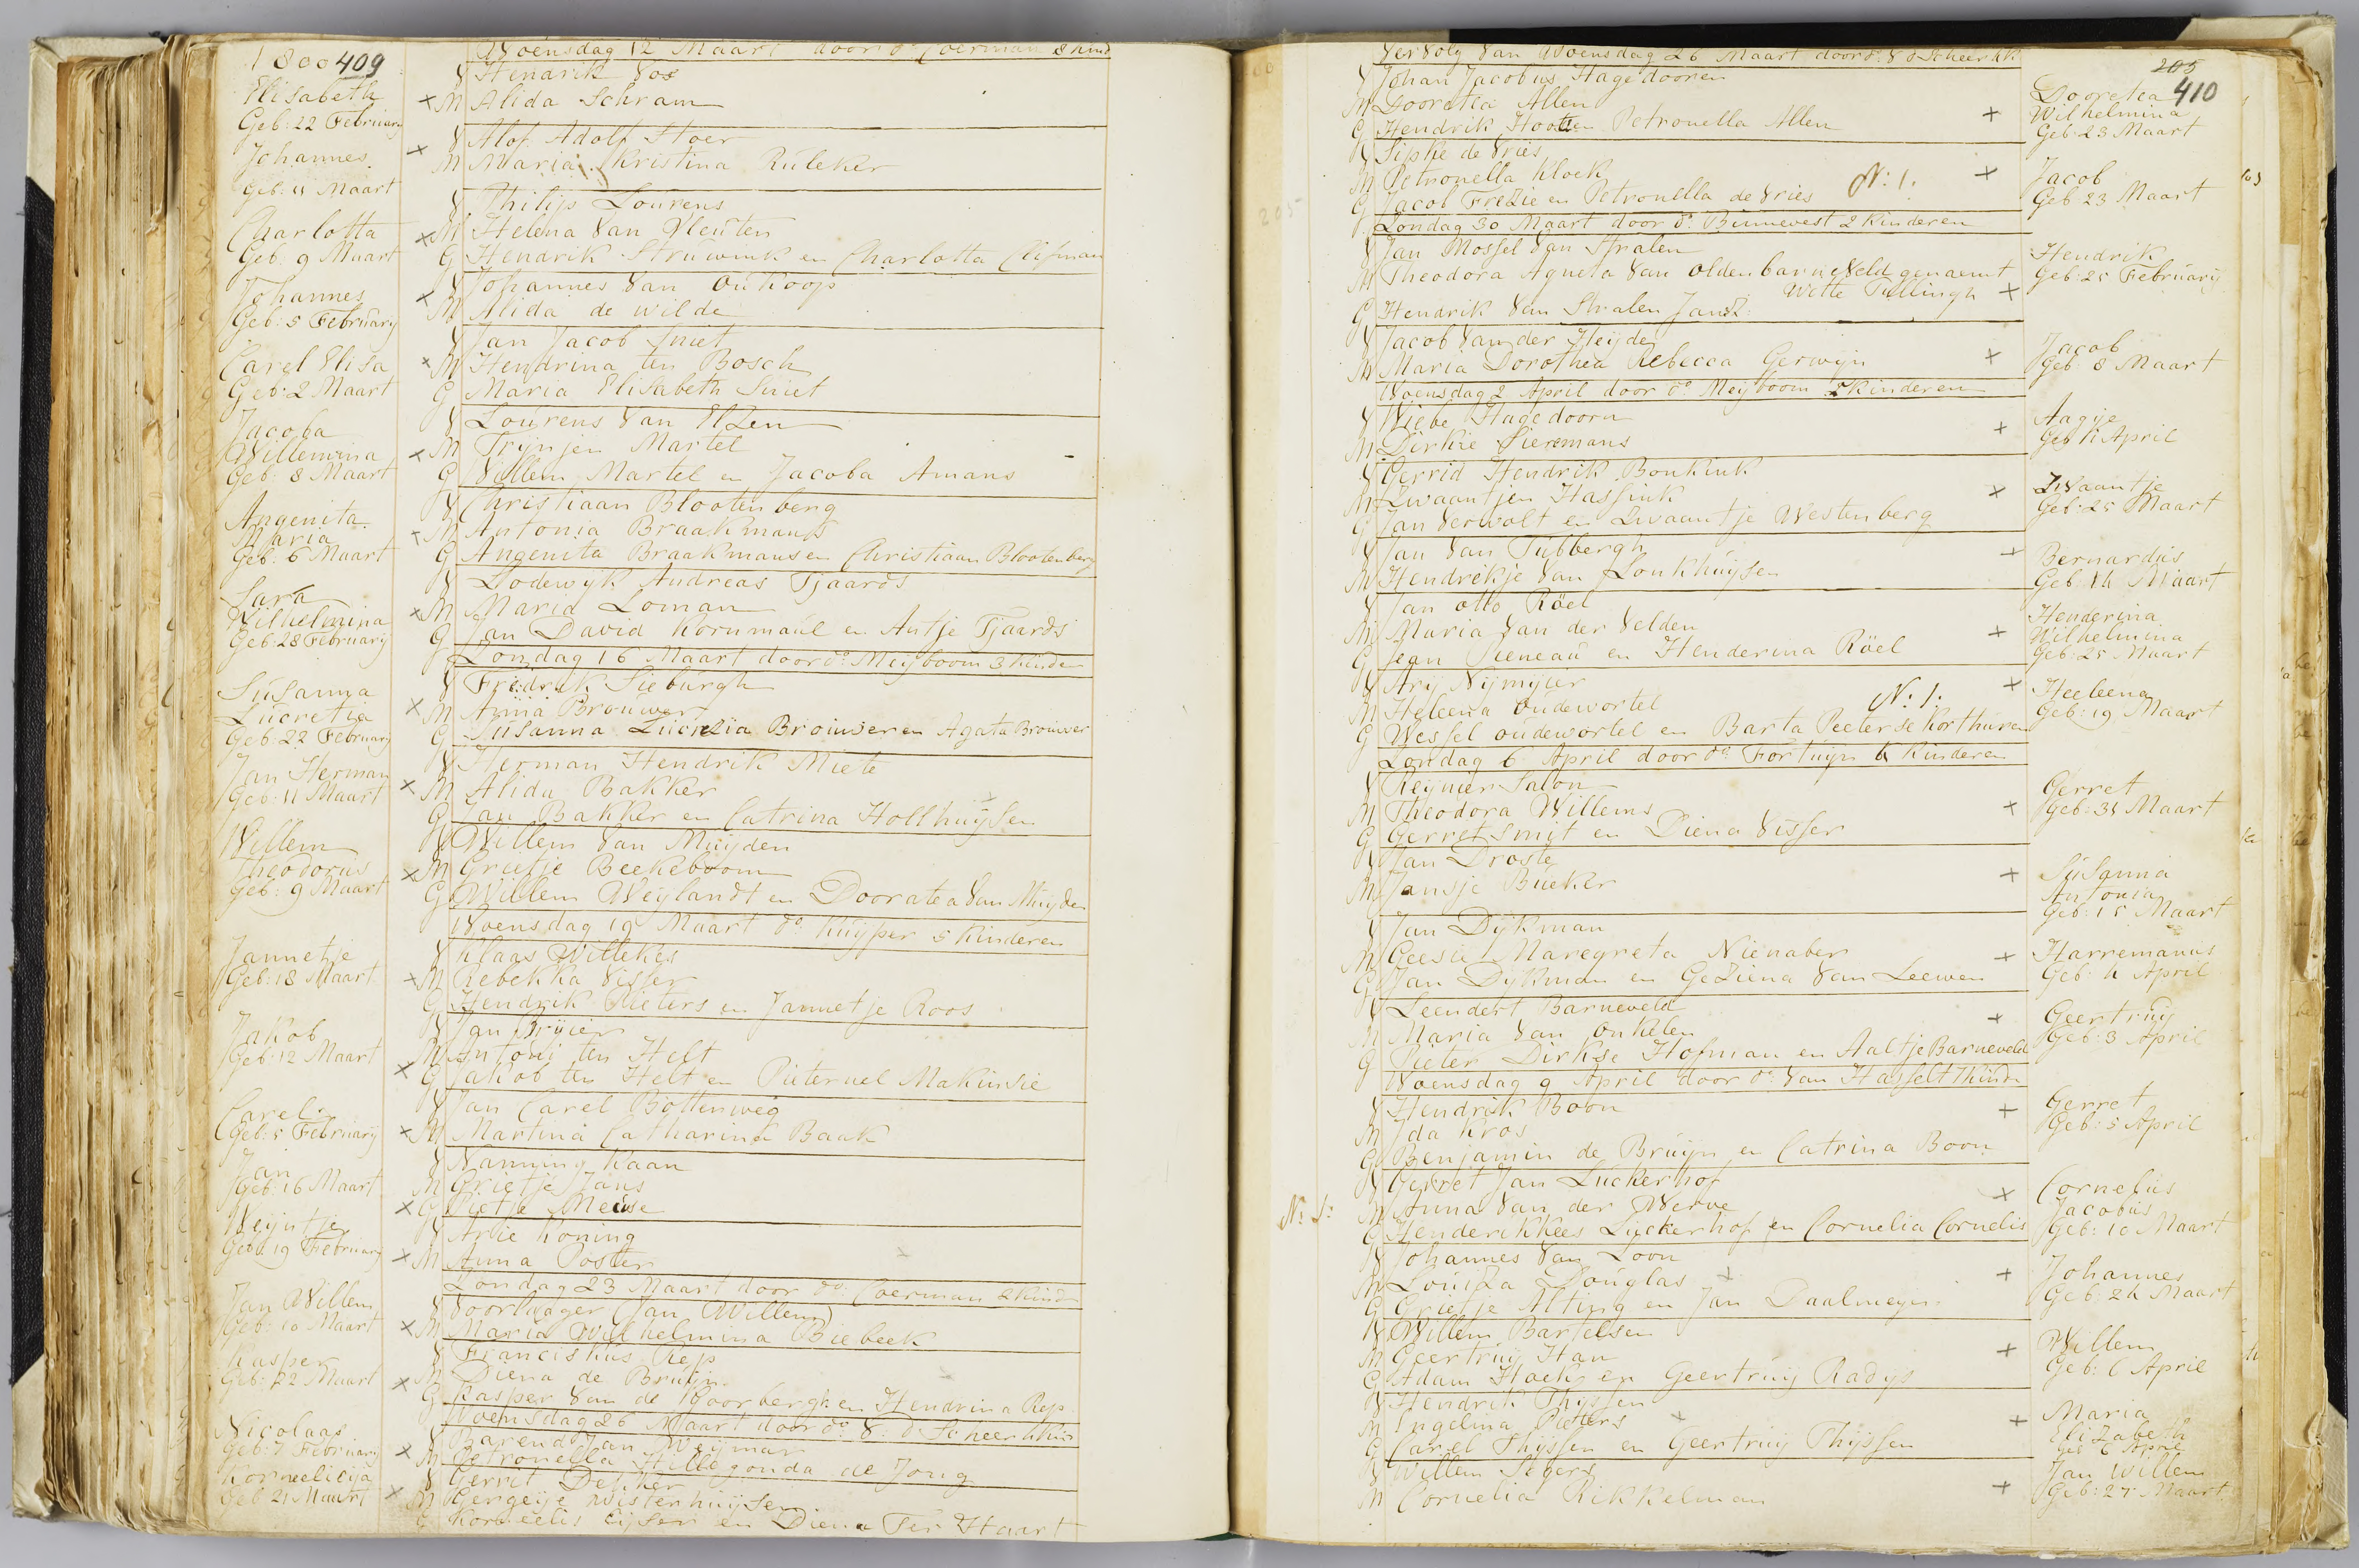 1800 409
Woensdag 12 Maart door ds Coerman 8 kind
Elisabeth
Geb: 22 February
V Hendrik Vos
× M Alida Schram
Johannes
Geb: 11 Maart
V Alof Adolf Stoer
× M Maria Kristina Ruleker
Charlotta
Geb: 9 Maart
V Philip Lourens
× M Helena Van Vleuten
G Hendrik Struwink en Charlotta
Johannes
Geb: 5 February
V Johannes Van Oukoop
× M Alida de Wilde
Carel Elisa
Geb: 2 Maart
V Jan Jacob Smet
× M Hendrina ten Bosch
G Maria Elisabeth Smet
Jacoba
Willemina
Geb: 8 Maart
V Lourens Van Elzen
× M Trijntjen Martel
G Willem Martel en Jacoba Amans
Angenita
Maria
Geb: 6 Maart
V Christiaan Blootenberg
× M Antonia Braakmans
G Angenita Braakmans en Christiaan Blootenberg
Sara
Wilhelmina
Geb: 28 February
V Lodewyk Andreas Tjaards
× M Maria Loman
G Jan David Kornmaul en Antje Tjaards
Zondag 16 Maart door ds Meijboom 3 kinder
Susanna
Lucretia
Geb: 22 February
V Fredrik Sieburgh
× M Anna Brouwer
G Susanna Lucrezia Brouwer en Agata Brouwer
Jan Herman
Geb: 11 Maart
V Herman Hendrik Miete
× M Alida Bakker
G Jan Bakker en Catrina Hollhuysen
Willem
Theodorus
Geb: 9 Maart
V Willem Van Muyden
× M Grietje Beekeboom
G Willem Weylandt en Dooratea Van Muyden
Woensdag 19 Maart ds Kuyper 5 kinderen
Jannetje
Geb: 18 Maart
V Klaas Willekes
× M Rebekka Visser
G Hendrik Pieters en Jannetje Roos
Jakob
Geb: 12 Maart
V Jan Bruier
M Antonij ten Helt
× G Jakob ten Helt en Pieternel Makinsie
Carel
Geb: 5 February
V Jan Carel Bottenweg
× M Martina Catharina Baak
Jan
Geb: 16 Maart
V Nanning Kaan
M Grietje Jans
× G Pietje Meeuse
Weijntje
Geb: 19 February
V Arie Koning
× M Anna Poster
Zondag 23 Maart door ds Coerman 2 kind
Jan Willem
Geb: 10 Maart
V Voorhager (Jan Willem)
× M Maria Wilhelmina Biebeek
Kasper
Geb: 22 Maart
V Franciskus Rep
M Diena de Bruijn
× G Kasper Van de Voorbergh en Hendrina Rep
Woensdag 26 Maart door ds V: d Scheer
Nicolaas
Geb: 7 February
V Barend Jan Weymar
× M Petronella Hillegonda de Jong
Korneelieija
Geb 21 Maart
V Gerret Dekker
× M Gergeije Wisterhuijsen
G Korneelis Eijser en Diena Ter Haart
Vervolg Van Woensdag 26 Maart door ds V d Scheer
205
410
V Johan Jacobus Hagedooren
M Dooretia Allen
G Hendrik Hooten Petronella Allen
×
Dooretea
Wilhelmina
Geb: 23 Maart
V Sipke de Vries
M Petronella Kloek
G Jacob Frezie en Petronella de Vries
N: 1.
×
Jacob
Geb 23 Maart
Zondag 30 Maart door ds Binnevest 2 kinderen
V Jan Mossel Van Stralen
M Theodora Agneta Van Oldenbarneveld genaamt
Witte Tullingh ×
G Hendrik Van Stralen Jansz.
Hendrik
Geb: 25 February
V Jacob Van der Heyden
M Maria Dorothea Rebecca Gerwijn
×
Jacob
Geb: 8 Maart
Woensdag 2 April door ds Meyboom 5 kinderen
V Wiebe Hagedoorn
M Dirkie Siermans
×
Aagije
Geb 1 April
V Gerrid Hendrik Bonkink
M Zwaantjen Hassink
G Jan Verwolt en Zwaantje Westenberg
×
Zwaantje
Geb: 25 Maart
V Jan Van Tubbergh
M Hendrikje Van Lonkhuysen
×
Bernardus
Geb: 14 Maart
V Jan Otto Röel
M Maria Van der Velden
G Jean Pieneau en Henderina Röel
×
Henderina
Wilhelmina
Geb: 25 Maart
V Arij Nijmijer
M Heleena Oudewortel
G Wessel Oudewortel en Barta Peeterse Korthuren
N: 1.
×
Heeleena
Geb: 19 Maart
Zondag 6 April door ds Fortuyn 4 kinderen
V Reynier Salon
M Theodora Willems
G Gerret Smit en Diena Visser
×
Gerret
Geb: 31 Maart
V Jan Droste
M Jansje Bueker
×
Susanna
Antonia
Geb: 15 Maart
V Jan Dykman
M Geesie Maregreta Nienaber
G Jan Dykman en Geziena Van Leewen
×
Harremanus
Geb: 4 April
V Leendert Barneveld
M Maria Van Onkelen
G Pieter Dirkse Hofman en Aaltje Barneveld
×
Geertruij
Geb: 3 April
Woensdag 9 April door ds Van Hasselt 7 kind
V Hendrik Boon
M Ida Kros
G Benjamin de Bruijn en Catrina Boon
×
Gerret
Geb: 5 April
N: 1:
V Gerret Jan Luckerhof
M Anna Van der Werve
G Henderikkees Luckerhof en Cornelia Cornelis
×
Cornelius
Jacobus
Geb: 10 Maart
V Johannes Van Loon
M Louiza Douglas
G Grietje Alting en Jan Daalmeyer
×
Johannes
Geb: 24 Maart
V Willem Bartelsen
M Geertruij Han
G Adam Hoek en Geertruij Radys
×
Willem
Geb: 6 April
V Hendrik Thyssen
M Engelina Pieters
G Carel Thijssen en Geertruij Thijssen
×
Maria
Elizabeth
Geb 6 April
V Willem Segers
M Cornelia Rikkelman
×
Jan Willem
Geb: 27 Maart